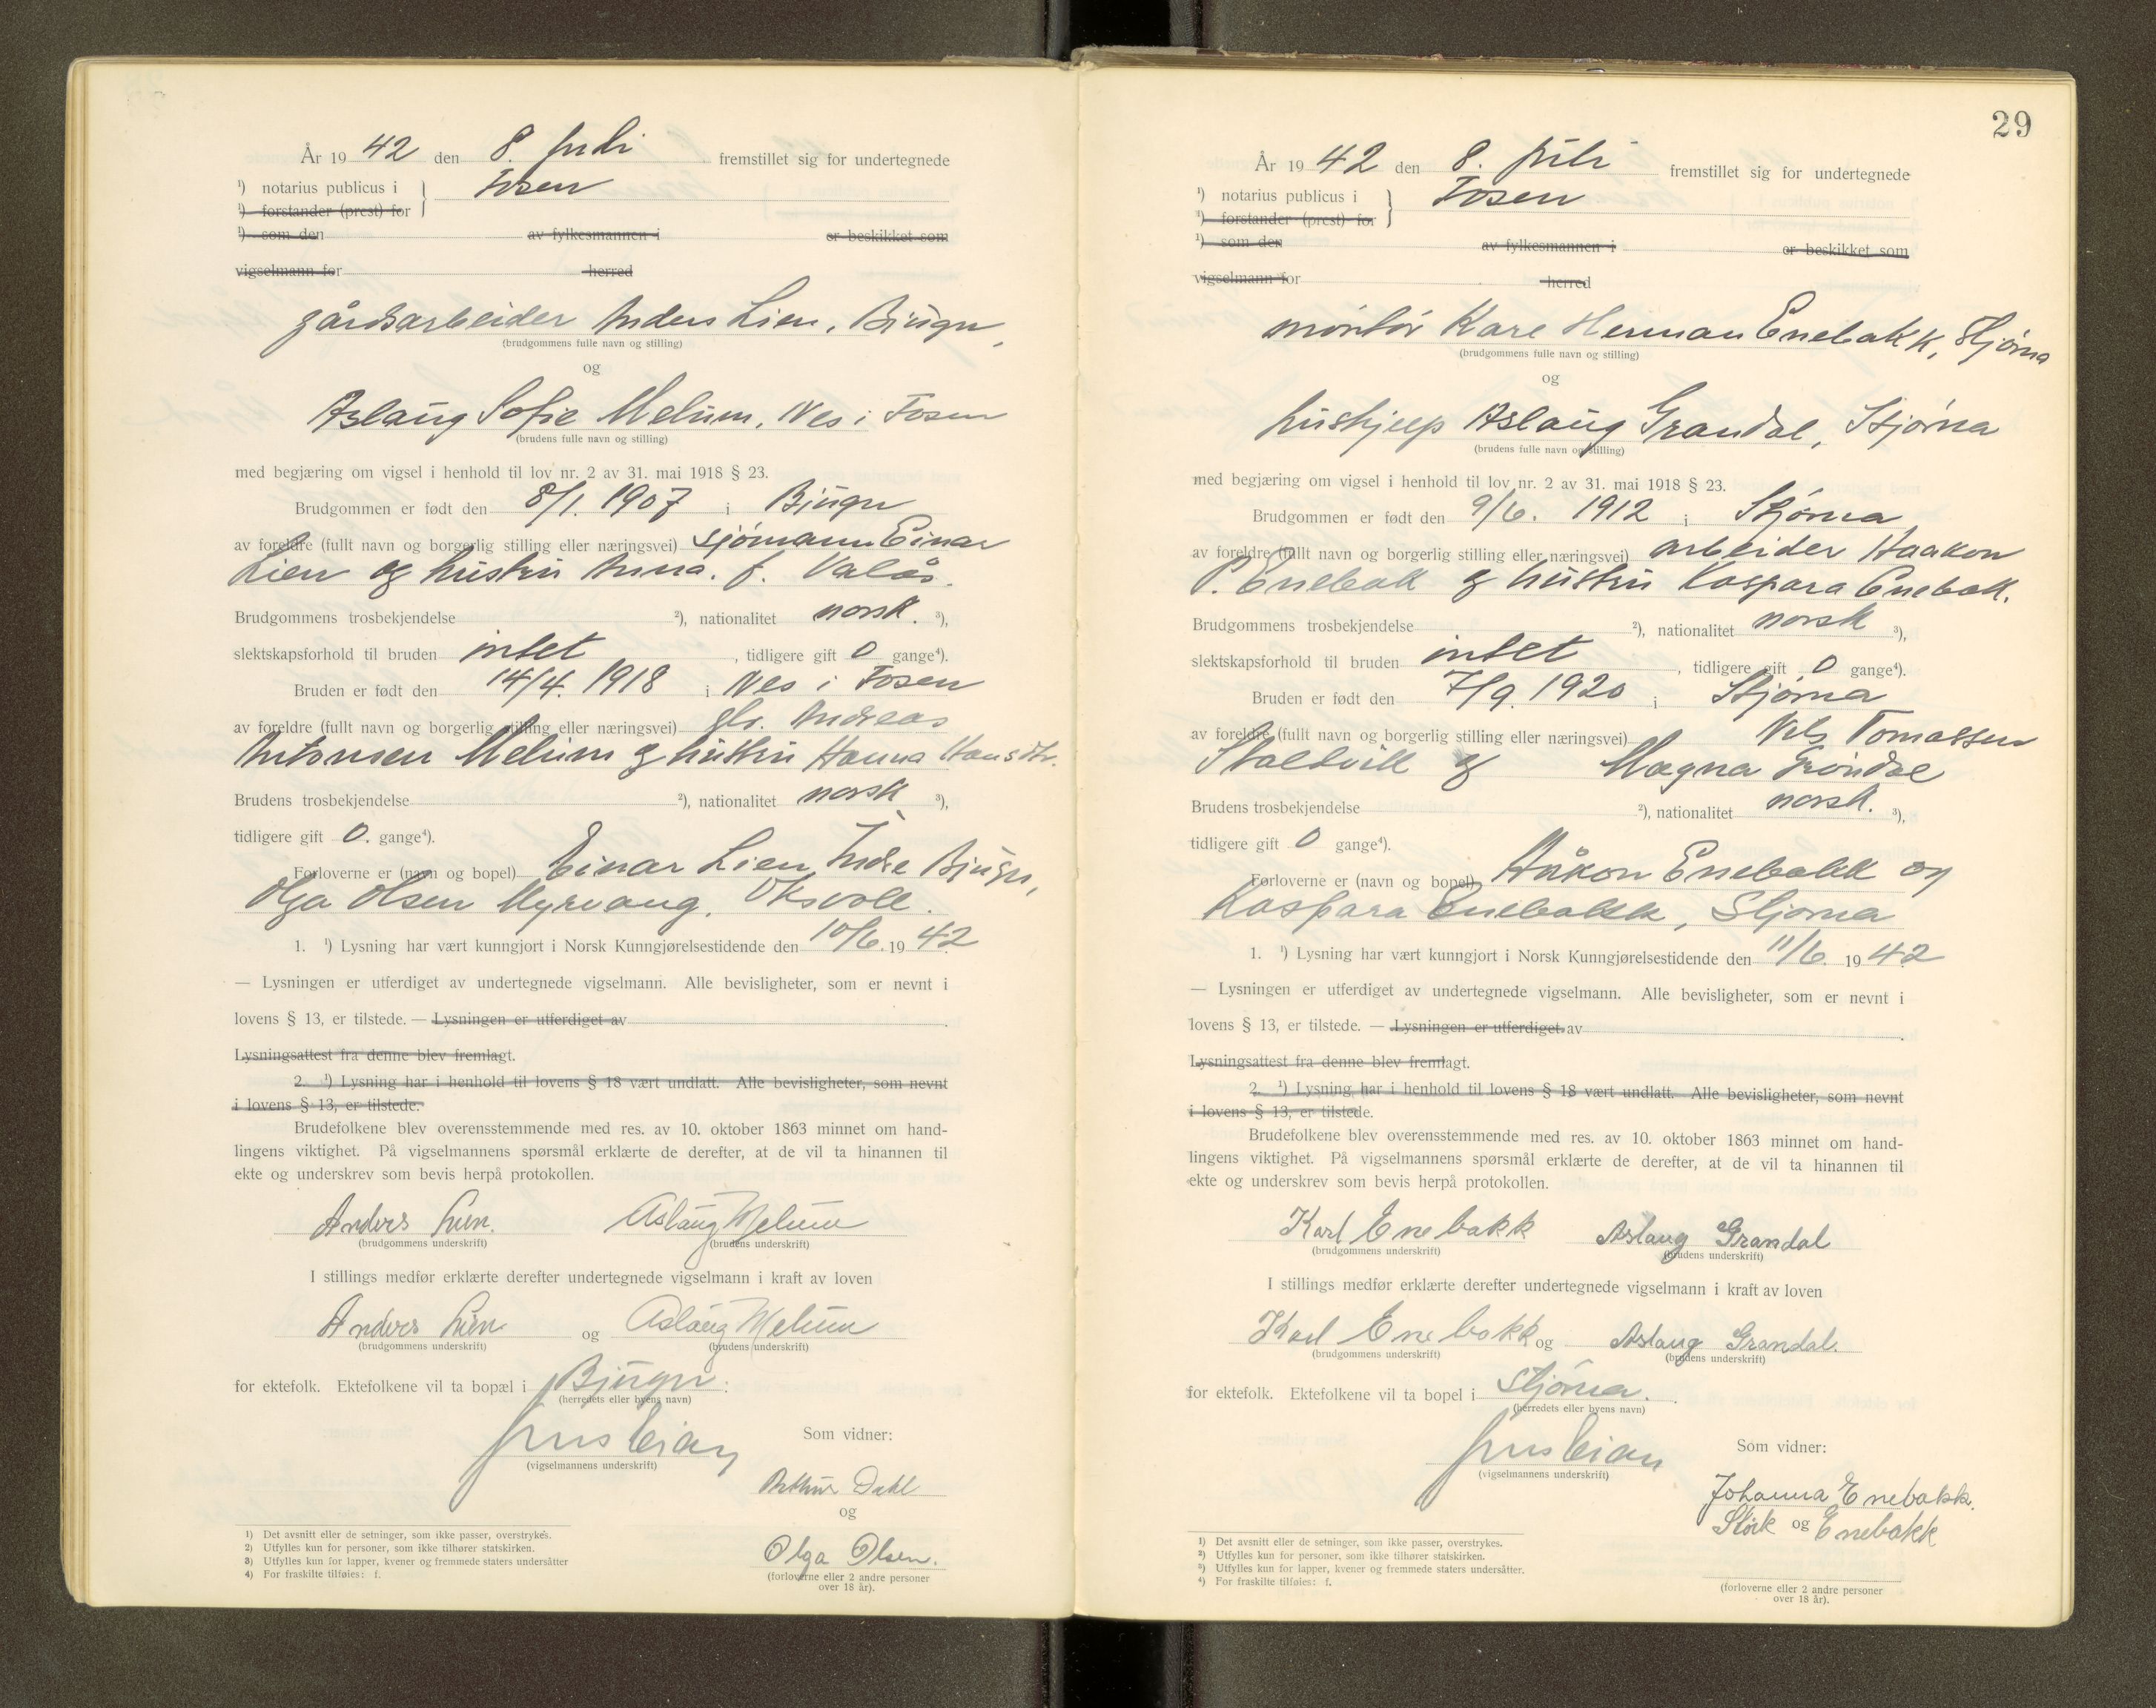 År 19 42 den 8. juli fremstillet sig for undertegnede
¹) notarius publicus i } Fosen
¹) forstander (prest) for
¹) som den av fylkesmannen i er beskikket som
vigselmann for herred
gårdsarbeider Anders Lien, Bjugn,
(brudgommens fulle navn og stilling)
og
Aslaug Sofie Melum, Nes i Fosen
(brudens fulle navn og stilling)
med begjæring om vigsel i henhold til lov nr. 2 av 31. mai 1918 § 23.
Brudgommen er født den 8/1. 1907 i Bjugn
av foreldre (fullt navn og borgerlig stilling eller næringsvei) sjømann Einar
Lien og hustru Anna. f. Valås.
Brudgommens trosbekjendelse ²), nationalitet norsk. ³),
slektskapsforhold til bruden intet, tidligere gift 0 gange⁴).
Bruden er født den 14/4. 1918 i Nes i Fosen
av foreldre (fullt navn og borgerlig stilling eller næringsvei) gbr. Andreas
Antonsen Melum og hustru Hanna Hansdtr.
Brudens trosbekjendelse ²), nationalitet norsk ³),
tidligere gift 0. gange⁴).
Forloverne er (navn og bopel) Einar Lien, Indre Bjugn,
Olga Olsen Myrvang, Oksvoll.
1. ¹) Lysning har vært kunngjort i Norsk Kunngjørelsestidende den 10/6. 19 42
— Lysningen er utferdiget av undertegnede vigselmann. Alle bevisligheter, som er nevnt i
lovens § 13, er tilstede. — Lysningen er utferdiget av
Lysningsattest fra denne blev fremlagt.
2. ¹) Lysning har i henhold til lovens § 18 vært undlatt. Alle bevisligheter, som nevnt
i lovens § 13, er tilstede.
Brudefolkene blev overensstemmende med res. av 10. oktober 1863 minnet om hand-
lingens viktighet. På vigselmannens spørsmål erklærte de derefter, at de vil ta hinannen til
ekte og underskrev som bevis herpå protokollen.
Anders Lien. Aslaug Melum
(brudgommens underskrift) (brudens underskrift)
I stillings medfør erklærte derefter undertegnede vigselmann i kraft av loven
Anders Lien og Aslaug Melum
(brudgommens underskrift) (brudens underskrift)
for ektefolk. Ektefolkene vil ta bopæl i Bjugn.
(herredets eller byens navn)
Jens Eian
(vigselmannens underskrift)
Som vidner:
Arthur Dahl
og
Olga Olsen.
(forloverne eller 2 andre personer
over 18 år).
1) Det avsnitt eller de setninger, som ikke passer, overstrykes.
2) Utfylles kun for personer, som ikke tilhører statskirken.
3) Utfylles kun for lapper, kvener og fremmede staters undersåtter
4) For fraskilte tilføies: f.
29
År 19 42 den 8. juli fremstillet sig for undertegnede
¹) notarius publicus i } Fosen
¹) forstander (prest) for
¹) som den av fylkesmannen i er beskikket som
vigselmann for herred
montør Kare Herman Enebakk, Stjørna
(brudgommens fulle navn og stilling)
og
hushjelp Aslaug Grandal, Stjørna
(brudens fulle navn og stilling)
med begjæring om vigsel i henhold til lov nr. 2 av 31. mai 1918 § 23.
Brudgommen er født den 9/6. 1912 i Stjørna
av foreldre (fullt navn og borgerlig stilling eller næringsvei) arbeider Haakon
P. Enebak og hustru Kaspara Enebakk.
Brudgommens trosbekjendelse ²), nationalitet norsk ³),
slektskapsforhold til bruden intet, tidligere gift 0 gange⁴).
Bruden er født den 7/9. 1920 i Stjørna
av foreldre (fullt navn og borgerlig stilling eller næringsvei) Nels Tomassen
og Magna Grøndal
Brudens trosbekjendelse ²), nationalitet norsk. ³),
tidligere gift 0 gange⁴).
Forloverne er (navn og bopel) Håkon Enebakk og
Kaspara Enebakk, Stjørna
1. ¹) Lysning har vært kunngjort i Norsk Kunngjørelsestidende den 11/6. 19 42
— Lysningen er utferdiget av undertegnede vigselmann. Alle bevisligheter, som er nevnt i
lovens § 13, er tilstede. — Lysningen er utferdiget av
Lysningsattest fra denne blev fremlagt.
2. ¹) Lysning har i henhold til lovens § 18 vært undlatt. Alle bevisligheter, som nevnt
i lovens § 13, er tilstede.
Brudefolkene blev overensstemmende med res. av 10. oktober 1863 minnet om hand-
lingens viktighet. På vigselmannens spørsmål erklærte de derefter, at de vil ta hinannen til
ekte og underskrev som bevis herpå protokollen.
Karl Enebakk Aslaug Grandal
(brudgommens underskrift) (brudens underskrift)
I stillings medfør erklærte derefter undertegnede vigselmann i kraft av loven
Karl Enebakk og Aslaug Grandal.
(brudgommens underskrift) (brudens underskrift)
for ektefolk. Ektefolkene vil ta bopel i Stjørna.
(herredets eller byens navn)
Jens Eian
(vigselmannens underskrift)
Som vidner:
Johanna Enebakk.
og Enebakk
(forloverne eller 2 andre personer
over 18 år).
1) Det avsnitt eller de setninger, som ikke passer, overstrykes.
2) Utfylles kun for personer, som ikke tilhører statskirken.
3) Utfylles kun for lapper, kvener og fremmede staters undersåtter.
4) For fraskilte tilføies: f.